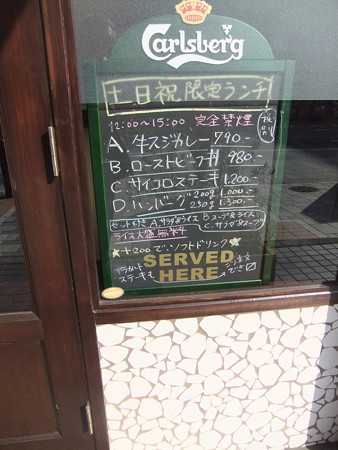 Carlsberg
土日祝限定ランチ
12:00～15:00 完全禁煙
税別
A. 牛スジカレー 790.-
B. ローストビーフ丼 980.-
C. サイコロステーキ 1.200.-
D. ハンバーグ 200g 1.000.-
250g 1.300.-
セット付き A.サラダ&ライス B.スープ&ライス
ライス大盛無料 C.サラダ&スープ
★+200で、ソフトドリンク★
SERVED
HERE
アラカルト
ステーキも
ご注文
でき